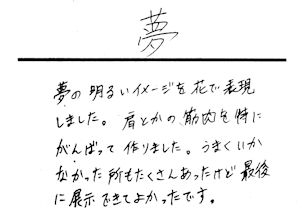 夢
夢の明るいイメージを花で表現
しました。肩とかの筋肉を特に
がんばって作りました。うまくいか
なかった所もたくさんあったけど最後
に展示できてよかったです。